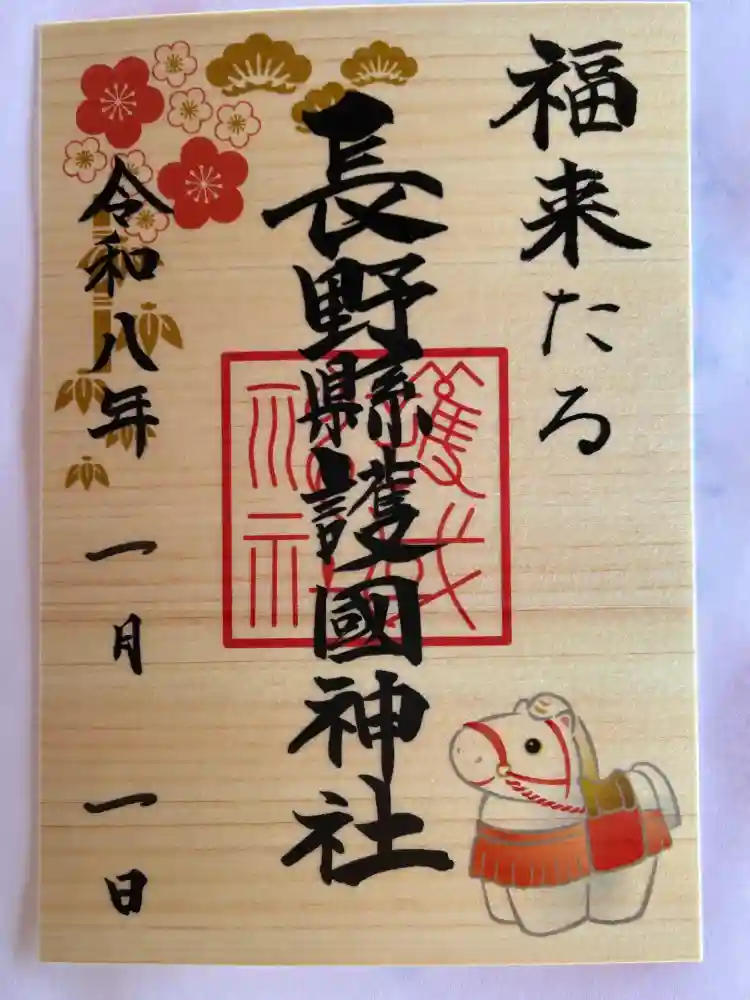 福来たる
長野縣護國神社
令和八年 一月 一日